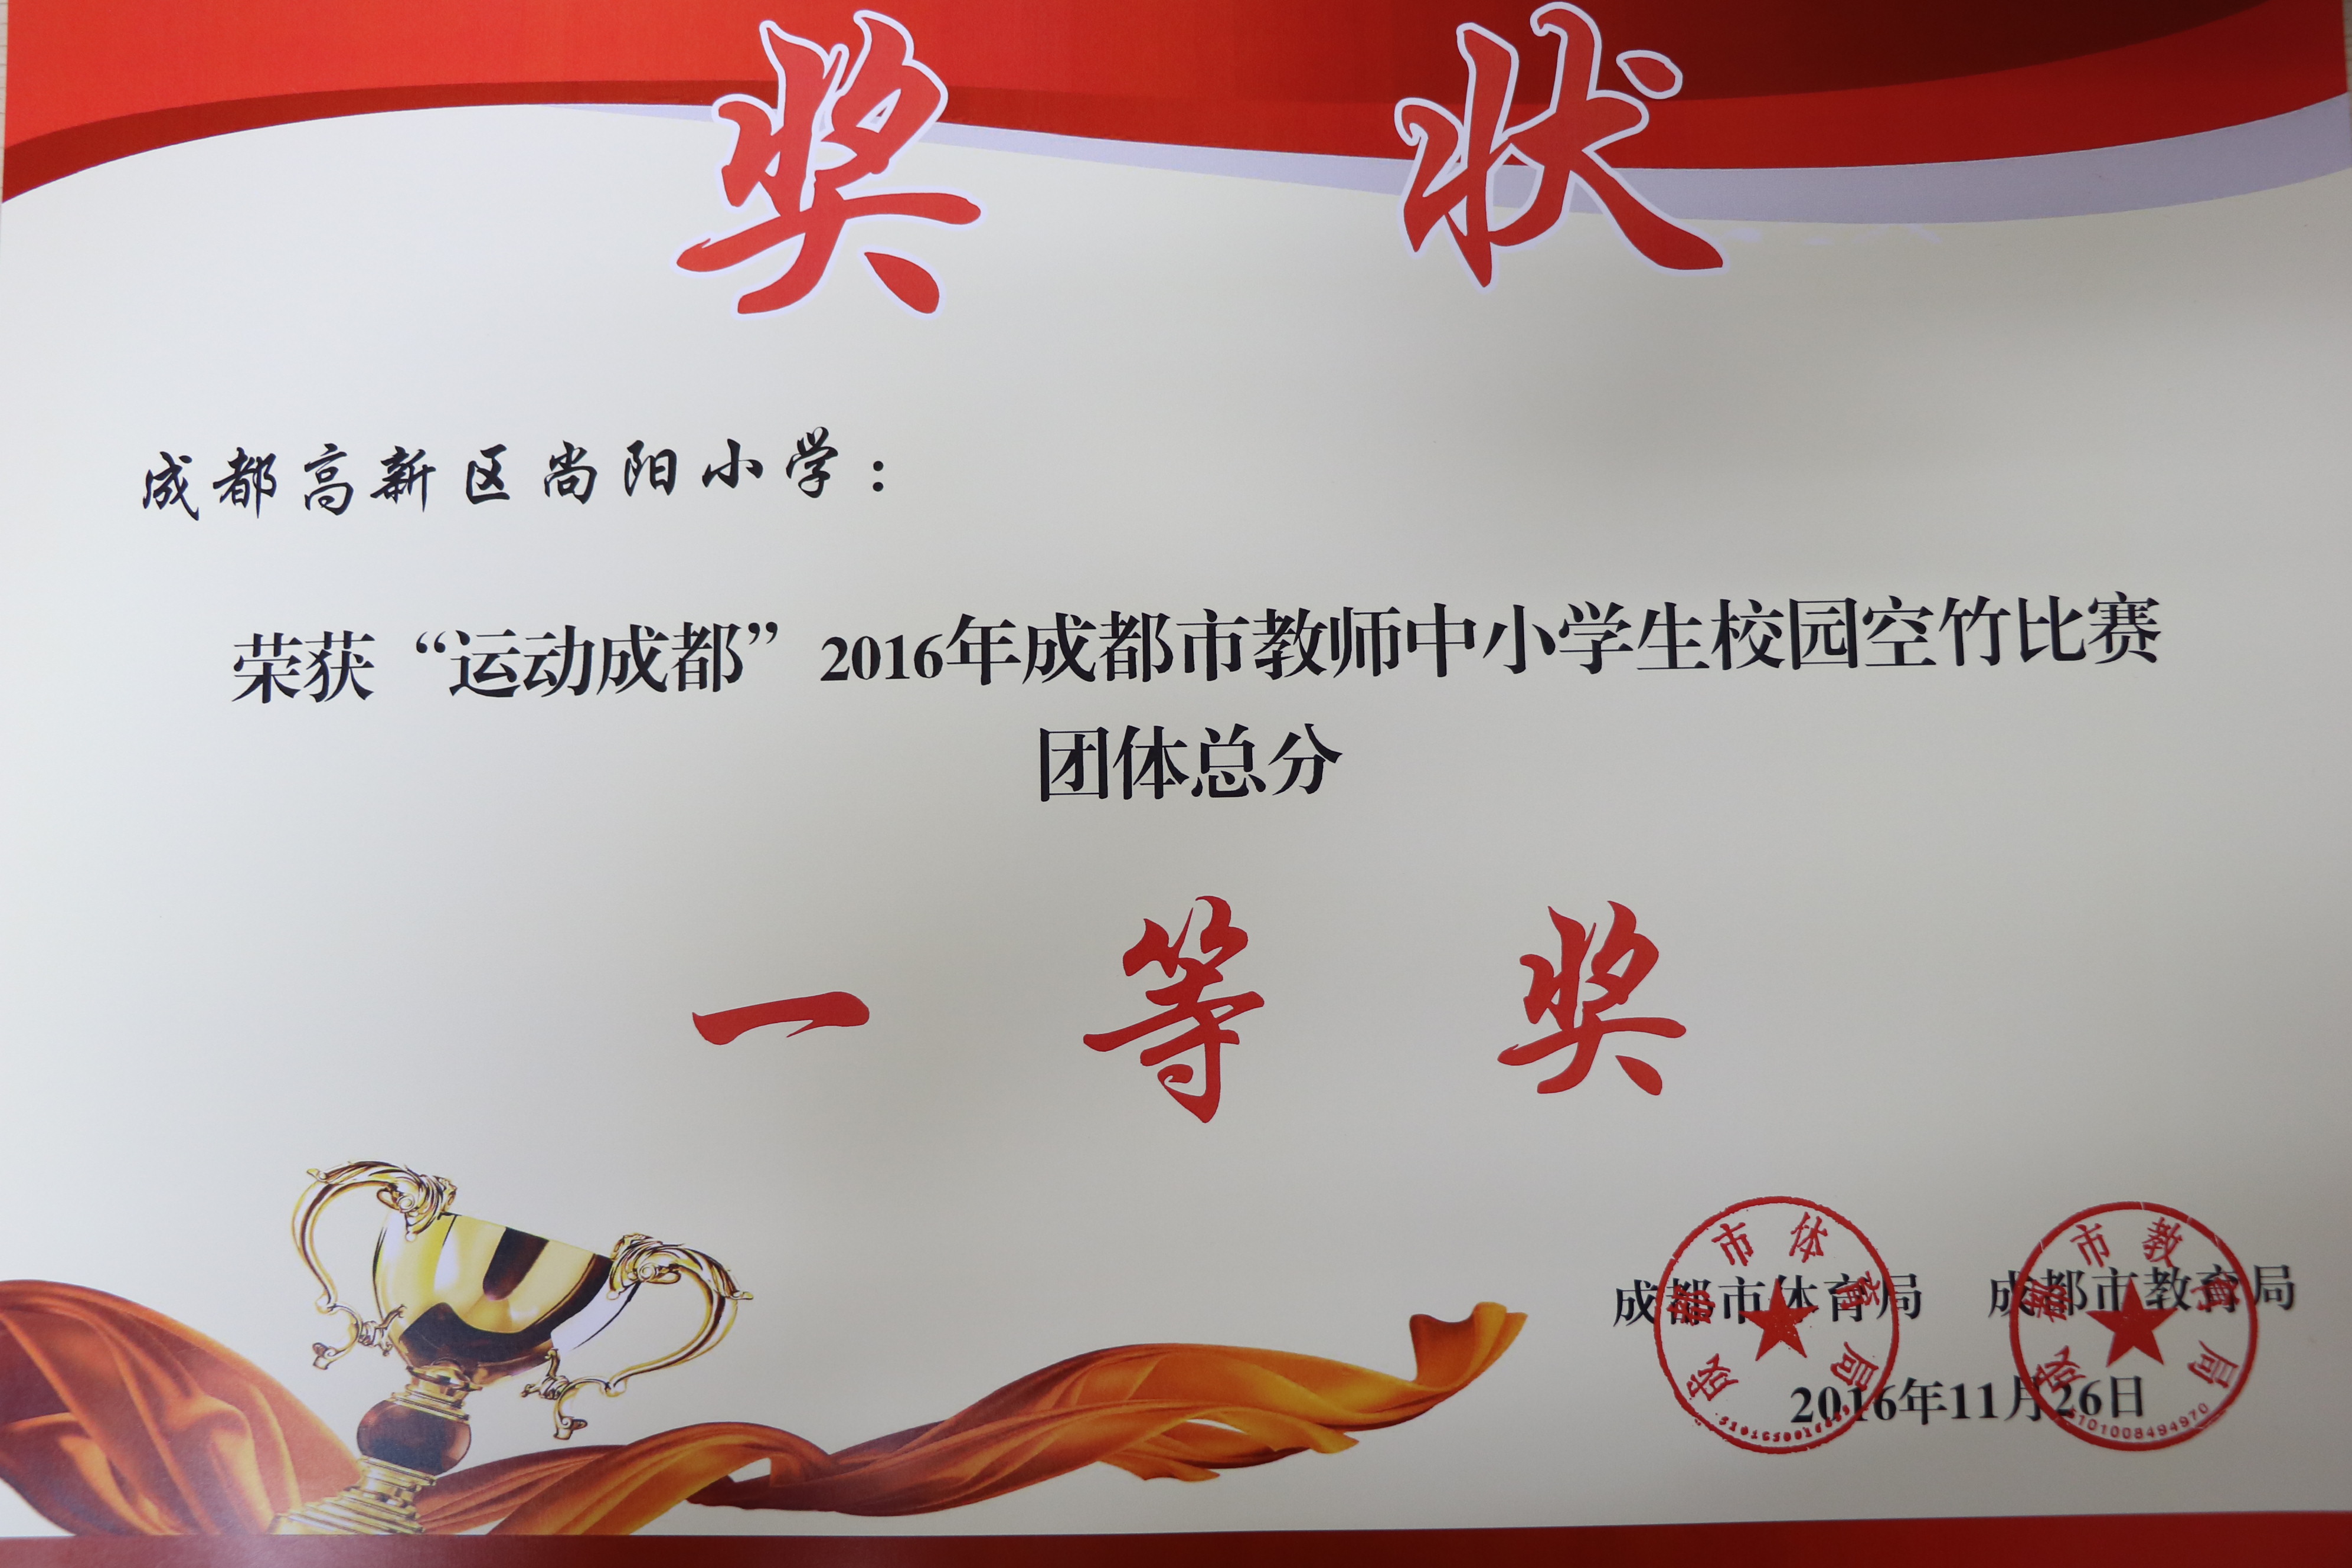 奖状
成都高新区尚阳小学：
荣获“运动成都”2016年成都市教师中小学生校园空竹比赛
团体总分
一等奖
成都市体育局 成都市教育局
2016年11月26日
成都市体育局
成都市教育局
5101008494970